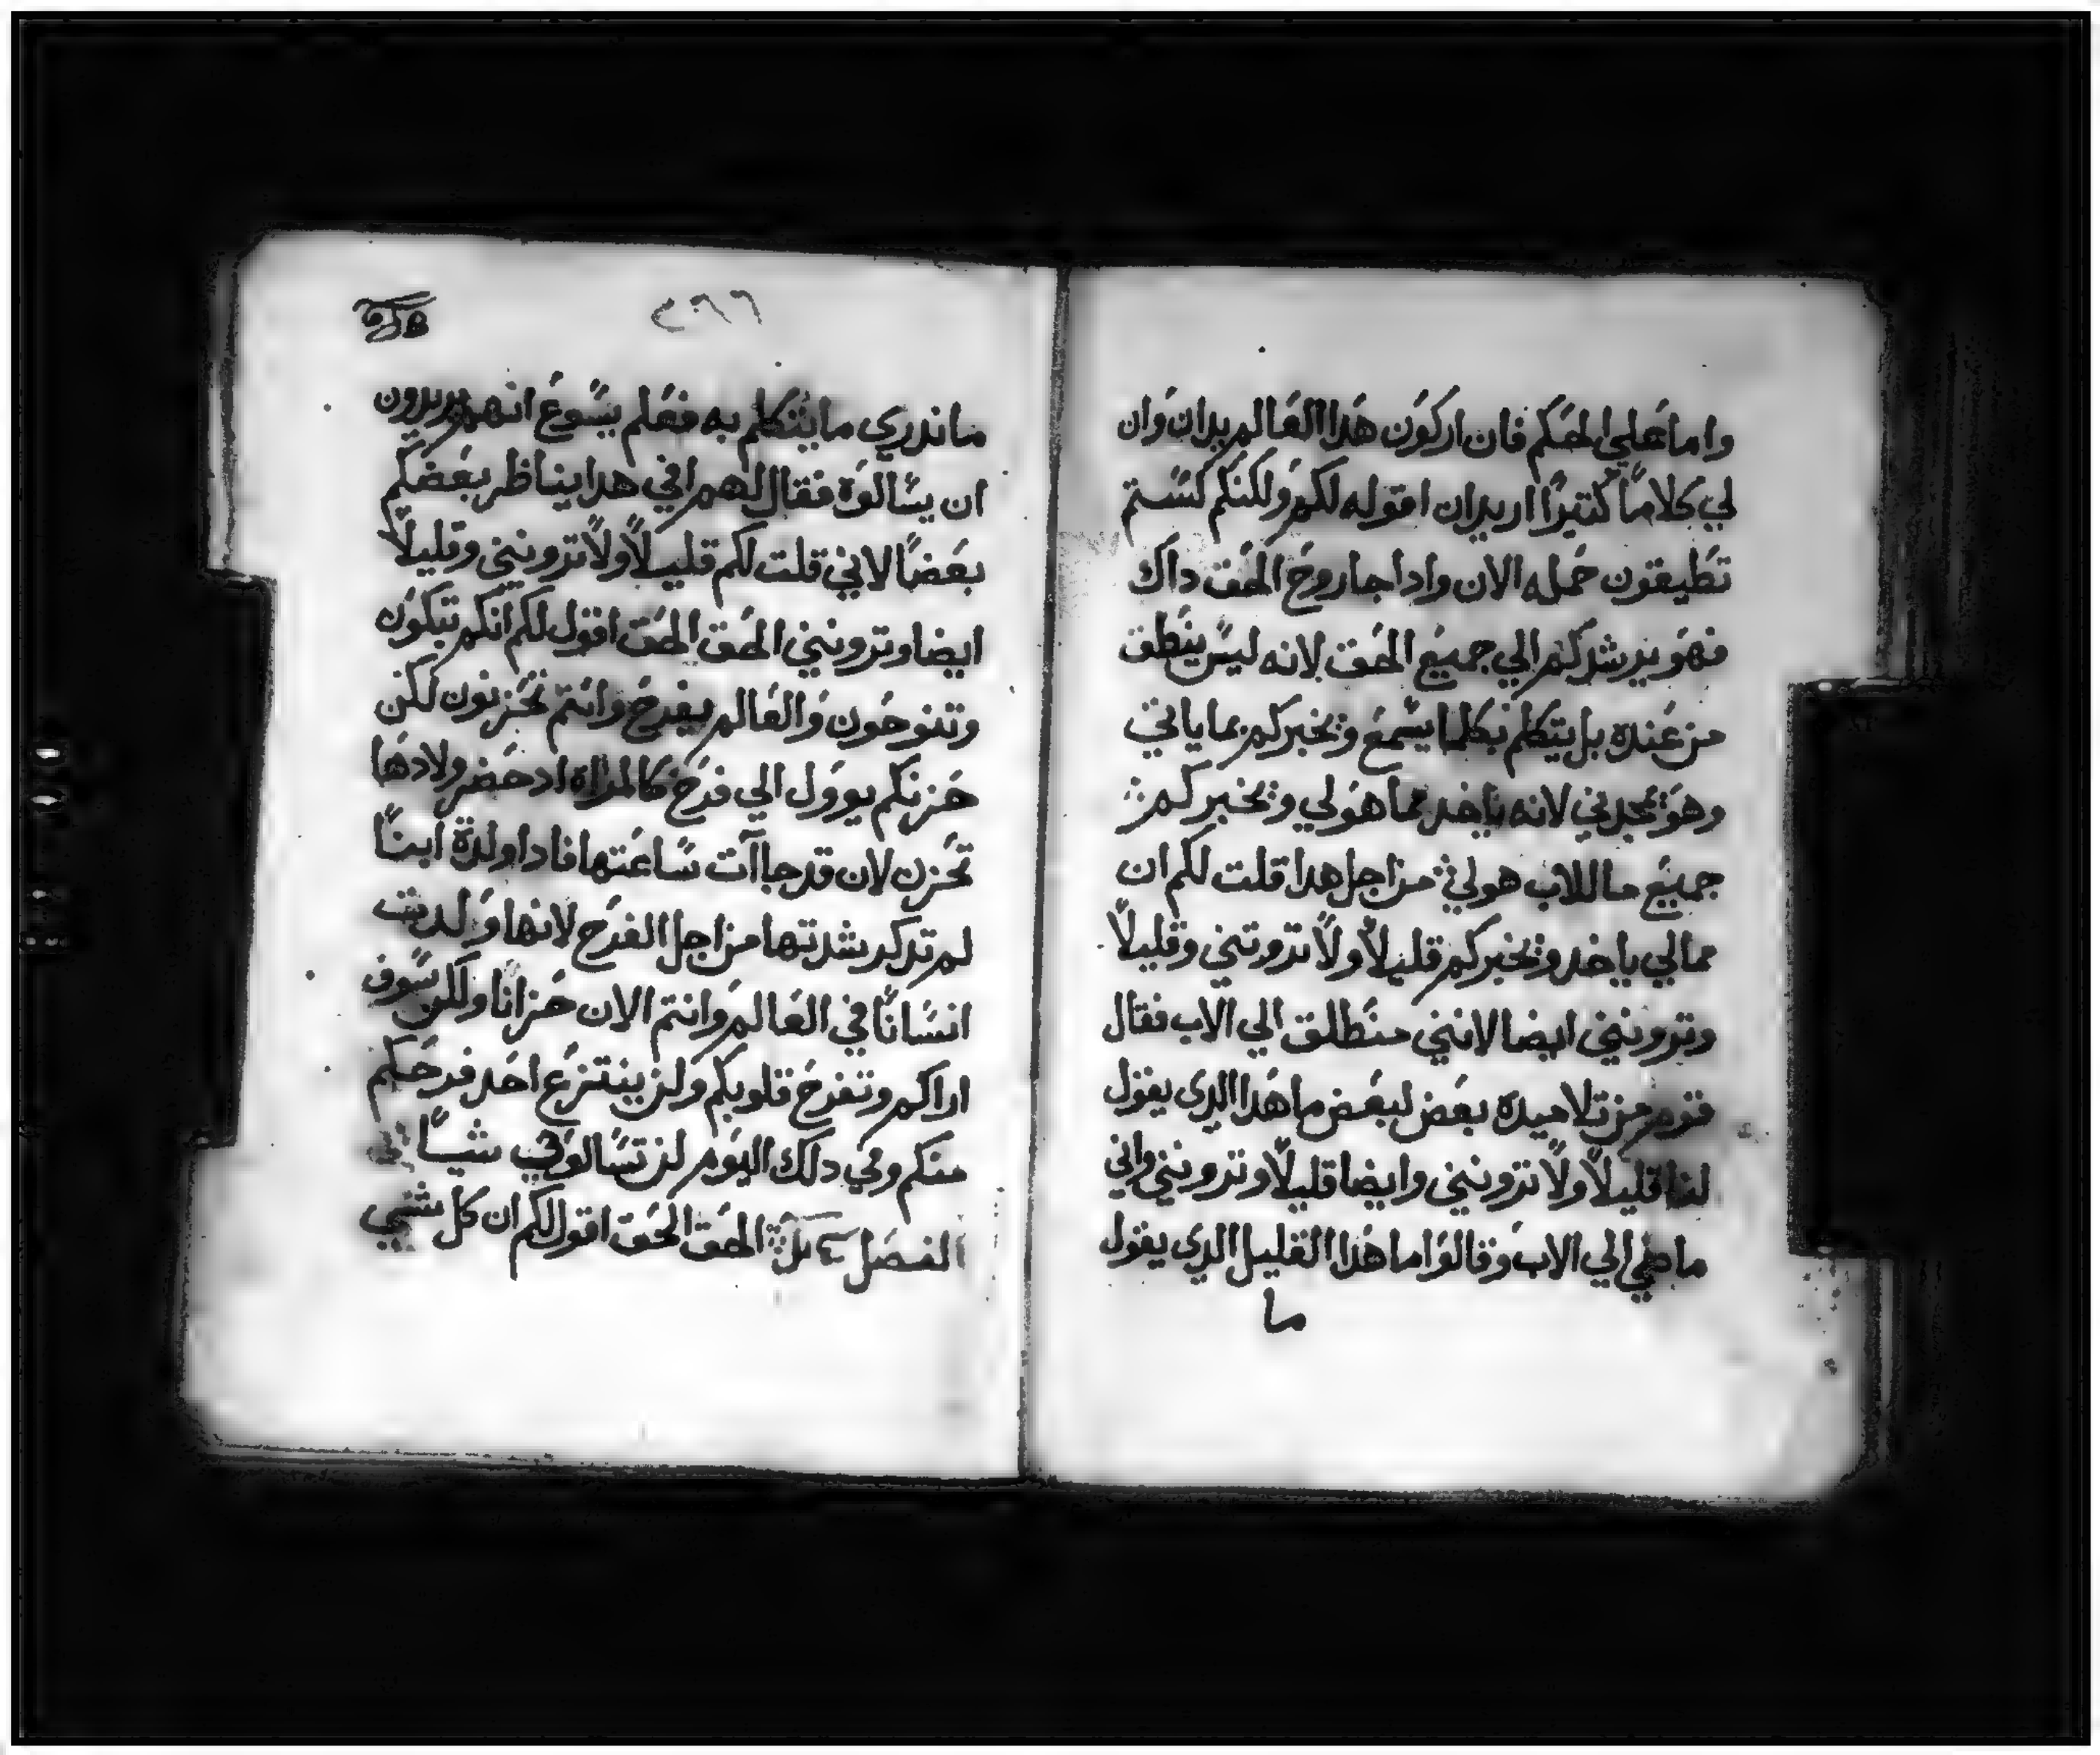 واما علي الحكم فان اركون هدا العالم يدان وان
لي كلاما كتيرا اريد ان اقوله لكم ولكنكم لستم
تطيقون حمله الان وادا جا روح الحق داك
فهو يرشدكم الي جميع الحق لانه ليس ينطق
من عنده بل يتكلم بكلما يسمع ويخبركم بما ياتي
وهو يمجدني لانه ياخد مما هو لي ويخبركم
جميع ما للاب هو لي من اجل هدا قلت لكم ان
مما لي ياخد ويخبركم قليلاً ولاً ترونني وقليلاً
وترونني ايضا لانني منطلق الي الاب فقال
قوم من تلاميده بعض لبعض ما هدا الدي يقول
لنا قليلاً ولاً ترونني وايضا قليلاً وترونني واني
ماضي الي الاب وقالوا ما هدا القليل الدي يقول
ما
٢٦٦
ما ندري ما يتكلم به فعلم يسوع انهم يريدون
ان يسالوه فقال لهم افي هدا يناظر بعضكم
بعضا لاني قلت لكم قليلاً ولاً ترونني وقليلاً
ايضا وترونني الحق الحق اقول لكم انكم تبكون
وتنوحون والعالم يفرح وانتم تحزنون لكن
حزنكم يوول الي فرح كالمراة اد حضر ولادها
تحزن لان قد جاآت ساعتها فادا ولدة ابنا
لم تدكر شدتها من اجل الفرح لانها ولدت
انسانا في العالم وانتم الان حزانا ولكن سوف
اراكم وتفرح قلوبكم ولن ينتزع احد فرحكم
منكم وفي دلك اليوم لن تسالوني شياً
الفصل الحق الحق اقول لكم ان كل شي